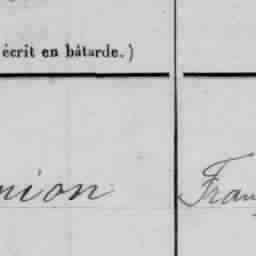 écrit en bâtarde.)
nion Fran